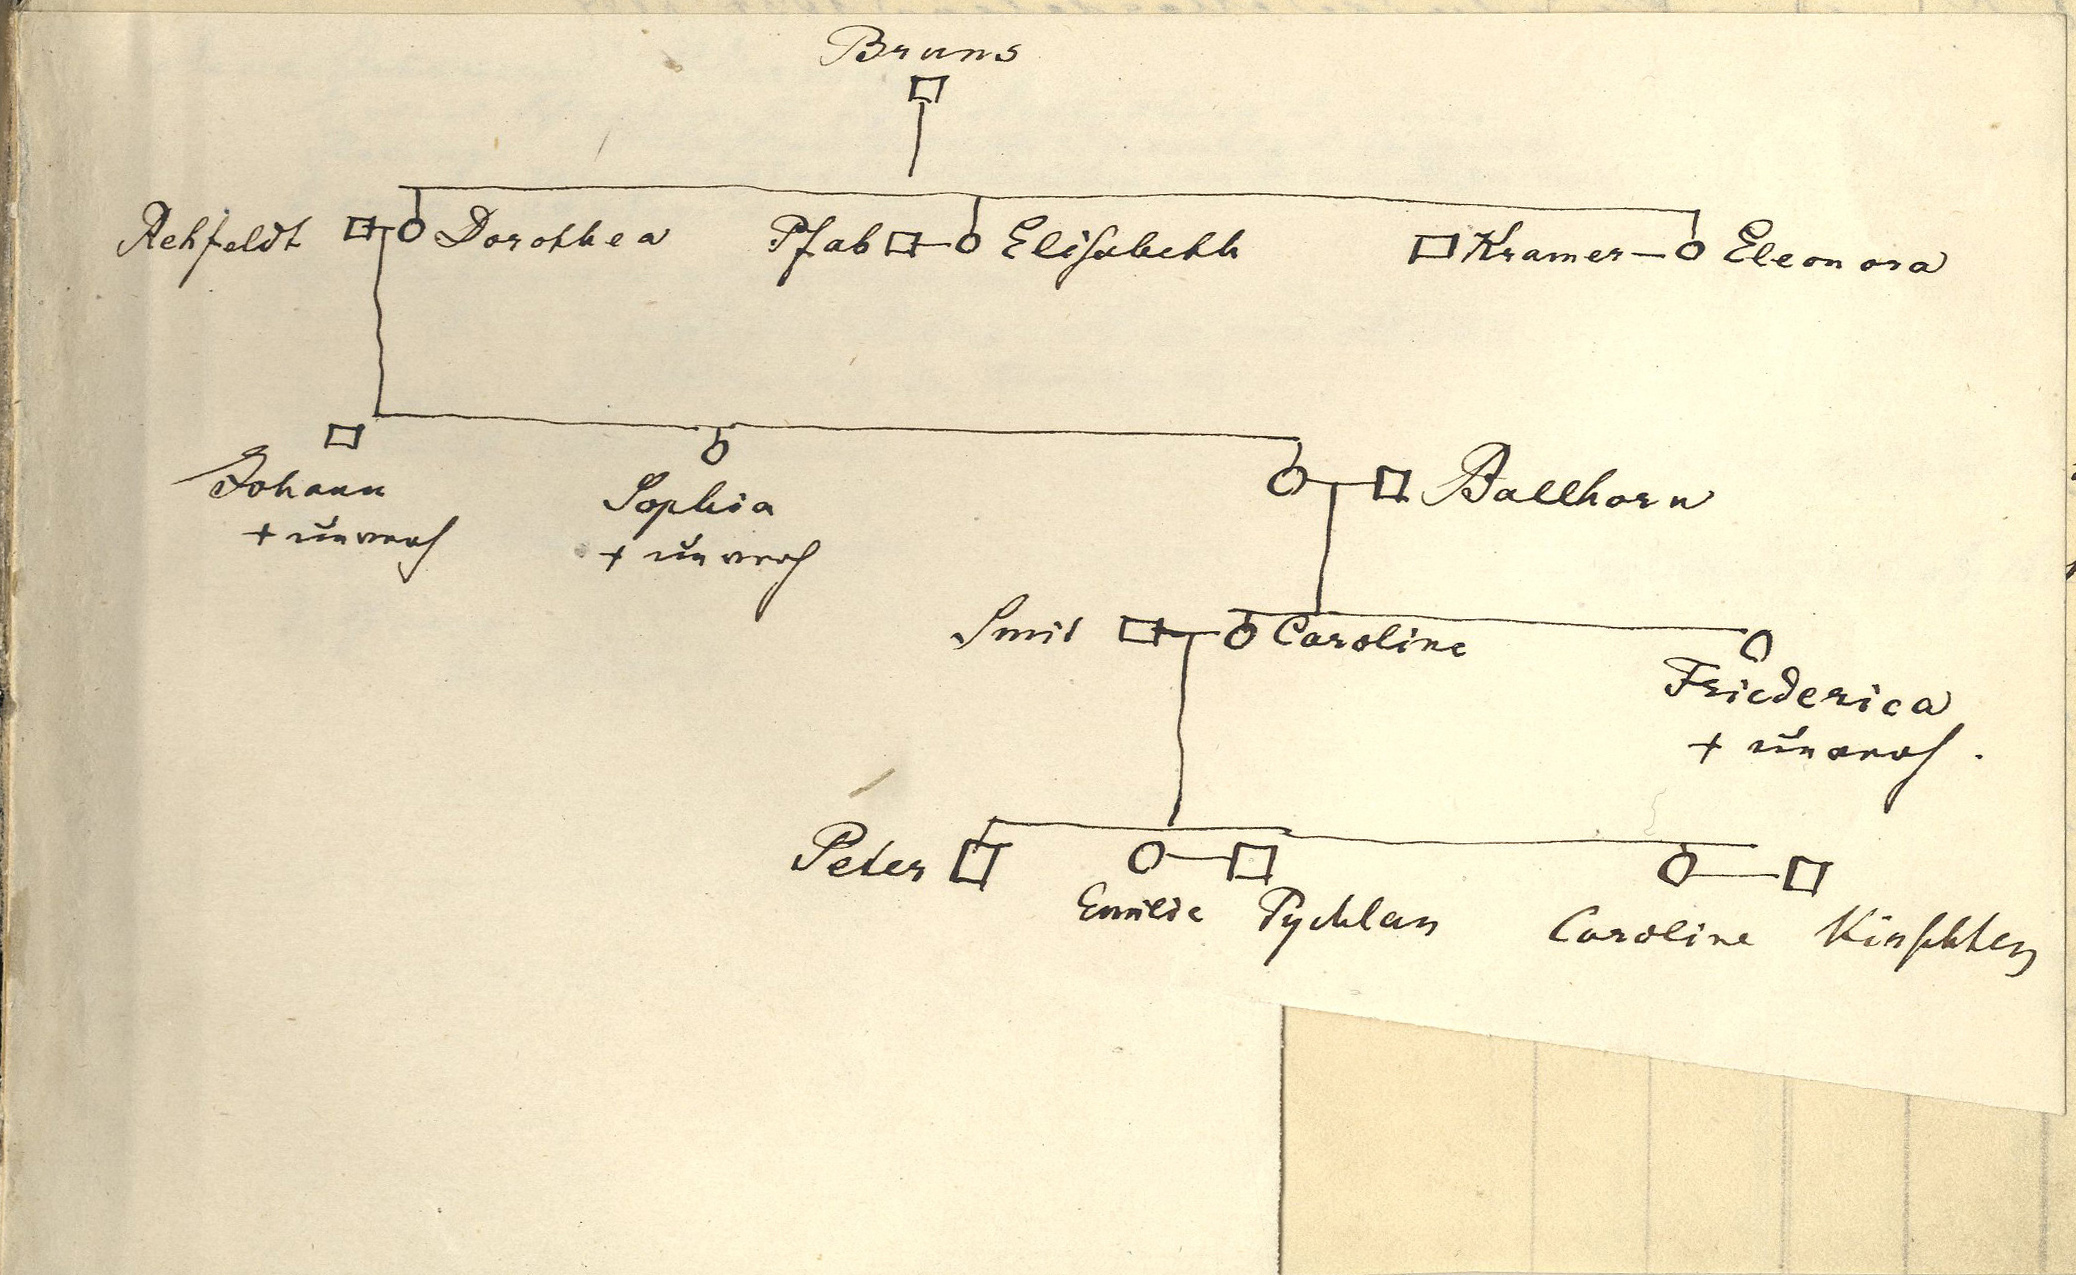 Bruns
Rehfeldt Dorothea Pfab Elisabeth Kramer Eleonora
Johann
+ unverh
Sophia
+ unverh
Ballhorn
Smit Caroline
Friederica
+ unverh.
Peter
Emilie Pychlau
Caroline